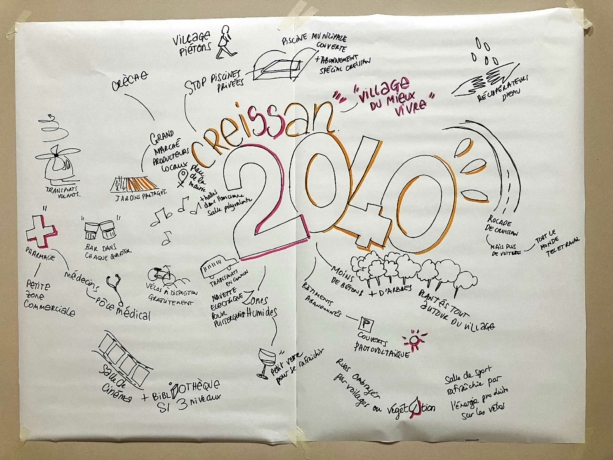 VILLAGE
PIÉTONS
PISCINE MUNICIPALE
COUVERTE
+ ABONNEMENT
SPÉCIAL CREISSAN
CRÈCHE
STOP PISCINES
PRIVÉES
"VILLAGE
DU MIEUX
VIVRE"
RÉCUPÉRATEURS
D'EAU
CREISSAN
2040
GRAND
MARCHÉ
PRODUCTEURS
LOCAUX
place
de la
mairie
TRANSPORTS
VOLANTS
JARDINS PARTAGÉS
ROCADE
DE CREISSAN
MAIS PLUS
DE VOITURE
TOUT LE
MONDE
TÉLÉTRAVAIL
PHARMACIE
BAR DANS
CHAQUE QUARTIER
PETITE
ZONE
COMMERCIALE
médecins
PÔLE médical
VÉLOS À DISPOSITION
GRATUITEMENT
TRANSPORTS
EN COMMUN
NAVETTE
ÉLECTRIQUE
POUR
Zones
Humides
MOINS
DE BÉTONS
+ D'ARBRES
PLANTÉS TOUT
AUTOUR DU VILLAGE
BÂTIMENTS
P
COUVERTS
PHOTOVOLTAÏQUE
Petit verre
pour se rafraîchir
Salle de
cinéma
+ BIBLIOTHÈQUE
S/ 3 niveaux
Rues ombragées
par voilages ou végétation
Salle de sport
rafraîchie par
l'énergie produite
sur les vélos